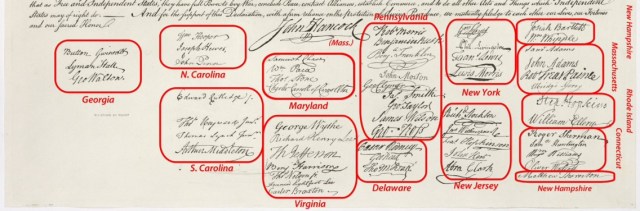 that as Free and Independent States, they have full Power to levy War, conclude Peace, contract Alliances, establish Commerce, and to do all other Acts and Things which Independent
States may of right do. — And for the support of this Declaration, with a firm reliance on the protection of
our Lives, our Fortunes
and our sacred Honor.
John Hancock
(Mass.)
Button Gwinnett
Lyman Hall
Geo Walton
Georgia
Wm Hooper
Joseph Hewes,
John Penn
N. Carolina
Edward Rutledge
Thos Heyward Junr.
Thomas Lynch Junr.
Arthur Middleton
S. Carolina
Samuel Chase
Wm. Paca
Thos. Stone
Charles Carroll of Carrollton
Maryland
George Wythe
Richard Henry Lee
Th Jefferson
Benj Harrison
Thos Nelson jr.
Francis Lightfoot Lee
Carter Braxton
Virginia
Pennsylvania
Robt Morris
Benjamin Rush
Benj. Franklin
John Morton
Geo Clymer
Jas. Smith
Geo. Taylor
James Wilson
Geo. Ross
Caesar Rodney
Geo Read
Tho M:Kean
Delaware
Wm Floyd
Phil. Livingston
Frans. Lewis
Lewis Morris
New York
Richd. Stockton
Jno Witherspoon
Fras. Hopkinson
John Hart
Abra Clark
New Jersey
Josiah Bartlett
Wm. Whipple
New Hampshire
Saml Adams
John Adams
Robt Treat Paine
Elbridge Gerry
Massachusetts
Step. Hopkins
William Ellery
Rhode Island
Roger Sherman
Saml Huntington
Wm. Williams
Oliver Wolcott
Connecticut
Matthew Thornton
New Hampshire